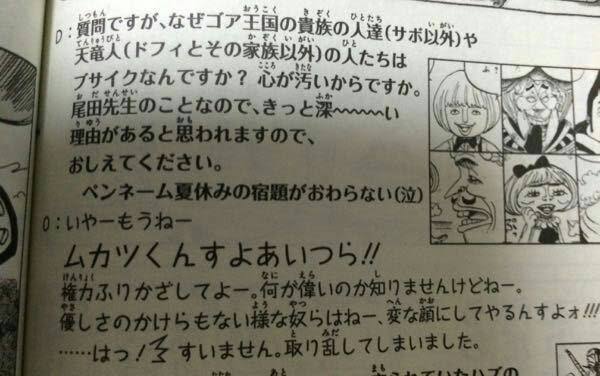 D：質問ですが、なぜゴア王国の貴族の人達(サボ以外)や
天竜人(ドフィとその家族以外)の人たちは
ブサイクなんですか？心が汚いからですか。
尾田先生のことなので、きっと深〜〜〜〜い
理由があると思われますので、
おしえてください。
ペンネーム夏休みの宿題がおわらない(泣)
O：いやーもうねー
ムカツくんすよあいつら!!
権力ふりかざしてよー。何が偉いのか知りませんけどねー。
優しさのかけらもない様な奴らはねー、変な顔にしてやるんすよォ!!!
……はっ！すいません。取り乱してしまいました。